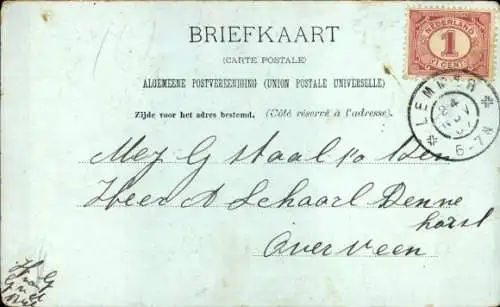 BRIEFKAART
(CARTE POSTALE)
ALGEMEENE POSTVEREENIGING (UNION POSTALE UNIVERSELLE)
Zijde voor het adres bestemd. (Côté réservé à l'adresse).
NEDERLAND
1
CENT
LEMMER
24
NOV
6-7N
Mej G
Heer A Schaarl Denne
horst
Overveen